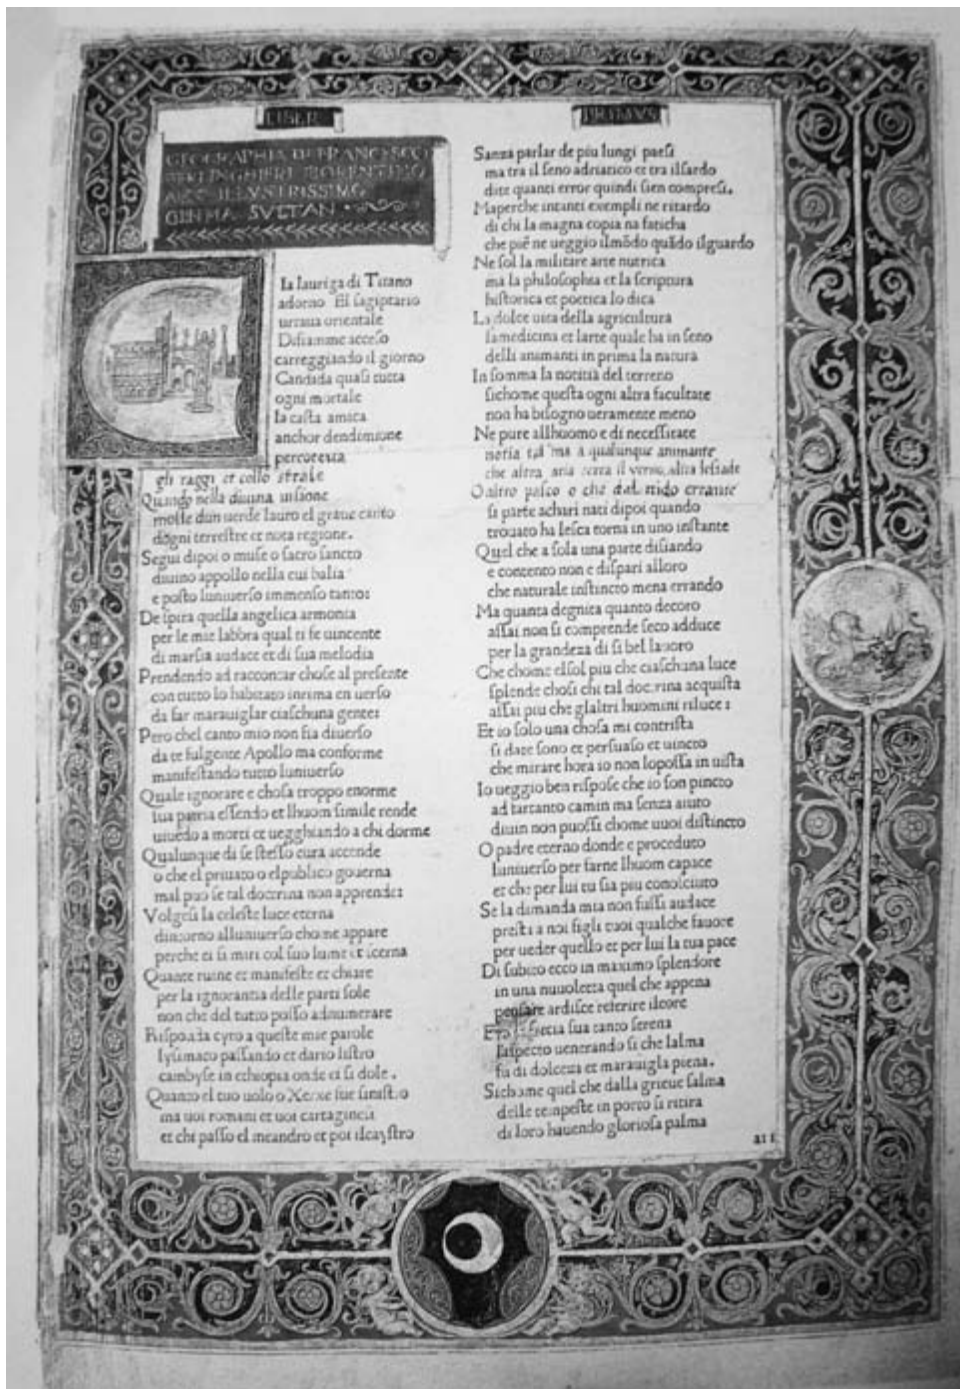 LIBER
GEOGRAPHIA DI FRANCESCO
BERLINGHIERI FIORENTINO
ILLVSTRISSIMO
GEN MA SVLTAN
la lauriga di Titano
adorno El sagiptario
orientale
Disiamme acceso
carreggiando il giorno
Candada quasi tutta
ogni mortale
la casta amica
anchor dendimione
percoteua
gli raggi et collo strale
Quando nella diuina uisione
mosse dun uerde lauro el graue canto
dogni terrestre et nota regione.
Segui dipoi o muse o sacro sancto
diuino appollo nella cui balia
e posto luniuerso immenso tanto:
De spira quella angelica armonia
per le mie labbra qual ti fe uincente
di marsia audace et di sua melodia
Prendendo ad raccontar chose al presente
con tutto lo habitato in rima en uerso
da far marauiglar ciaschuna gente:
Pero chel canto mio non sia diuerso
da te fulgente Apollo ma conforme
manifestando tutto luniuerso
Quale ignorare e chosa troppo enorme
sua patria essendo et lhuom simile rende
uiuēdo a morti et uegghiando a chi dorme
Qualunque di se stesso cura accende
o che el priuato o elpublico gouerna
mal puo se tal doctrina non apprende:
Volgesi la celeste luce eterna
dintorno alluniuerso chome appare
perche ci si miri col suo lume et scerna
Quante ruine et manifeste et chiare
per la ignorantia delle parti sole
non che del tutto posso adnumerare
Risponda cyro a queste mie parole
lysimaco passando et dario listro
cambyse in ethiopia onde ei si dole.
Quanto el tuo uolo o Xerxe fue sinistro
ma uoi romani et uoi cartaginesi
et chi passo el meandro et poi ilcaystro
PRIMVS
Sanza parlar de piu lungi paesi
ma tra il seno adriatico et tra ilsardo
dite quanti error quindi sien compresi.
Maperche intanti exempli ne ritardo
di chi la magna copia na faticha
che piē ne ueggio ilmōdo quādo ilguardo
Ne sol la militare arte nutrica
ma la philosophia et la scriptura
historica et poetica lo dica
La dolce uita della agricultura
la medicina et larte quale ha in seno
delli animanti in prima la natura
In somma la notitia del terreno
sichome questa ogni altra facultate
non ha bisogno ueramente meno
Ne pure allhuomo e di necessitate
ma a qualunque animante
che altra aria cerca il verno, altra lestade
O altro pasco o che dal nido errante
si parte achari nati dipoi quando
trouato ha lesca torna in uno instante
Quel che a sola una parte disiando
e contento non e dispari alloro
che naturale instincto mena errando
Ma quanta degnita quanto decoro
assai non si comprende seco adduce
per la grandeza di si bel lauoro
Che chome elsol piu che ciaschuna luce
splende chosi chi tal doctrina acquista
assai piu che glaltri huomini riluce:
Et io solo una chosa mi contrista
si date sono et persuaso et uincto
che mirare hora io non lopossa in uista
Io ueggio ben rispose che io son pincto
ad tartanto camin ma senza aiuto
diuin non puossi chome uuoi distincto
O padre eterno donde e proceduto
luniuerso per farne lhuom capace
et che per lui tu sia piu conosciuto
Se la dimanda mia non fussi audace
presti a noi figli tuoi qualche fauore
per ueder quello et per lui la tua pace
Di subito ecco in maximo splendore
in una nuuoletta quel che appena
pensare ardisce referire ilcore
sua tanto serena
laspecto uenerando si che lalma
fu di dolceza et marauigla piena.
Sichome quel che dalla grieue salma
delle tempeste in porto si ritira
di loro hauendo gloriosa palma